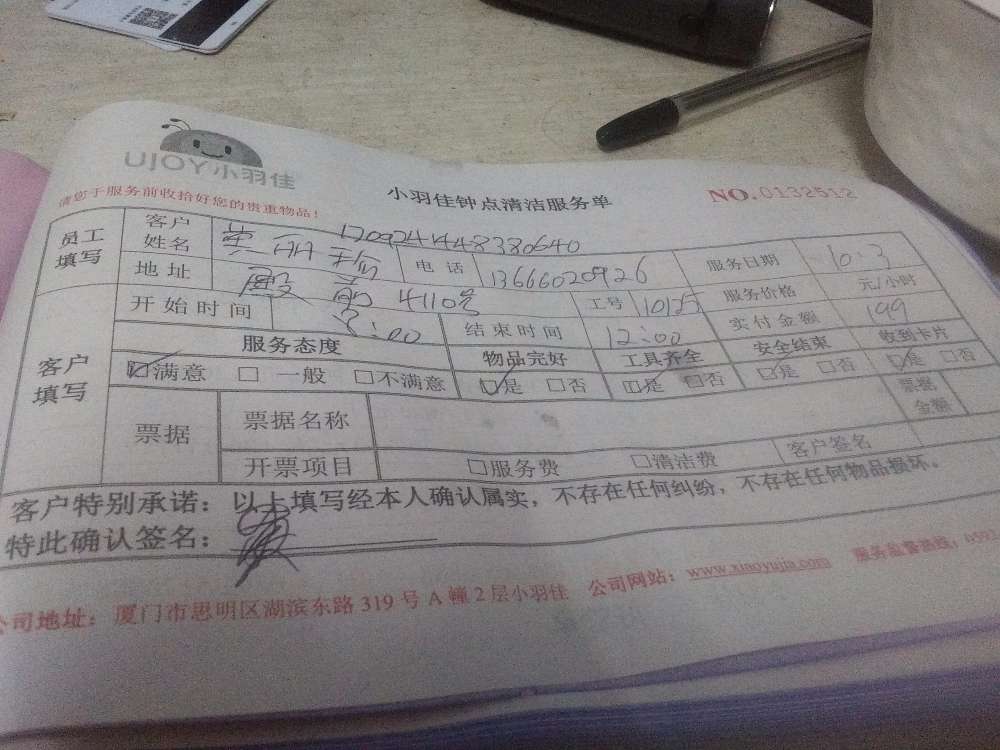 UJOY小羽佳
请您于服务前收拾好您的贵重物品！
小羽佳钟点清洁服务单
NO.0132512
员工填写 客户姓名 电话 13666020926 服务日期
地址 殿前4110号 工号 服务价格 元/小时
客户填写 开始时间 8:00 结束时间 12:00 实付金额 199
服务态度 物品完好 工具齐全 安全结束 收到卡片
☑满意 □一般 □不满意 ☑是 □否 ☑是 □否 ☑是 □否 ☑是 □否
票据 票据名称 票据金额
开票项目 □服务费 □清洁费 客户签名
客户特别承诺：以上填写经本人确认属实，不存在任何纠纷，不存在任何物品损坏。
特此确认签名：
公司地址：厦门市思明区湖滨东路319号A幢2层小羽佳 公司网站：www.xiaoyujia.com 服务监督热线：